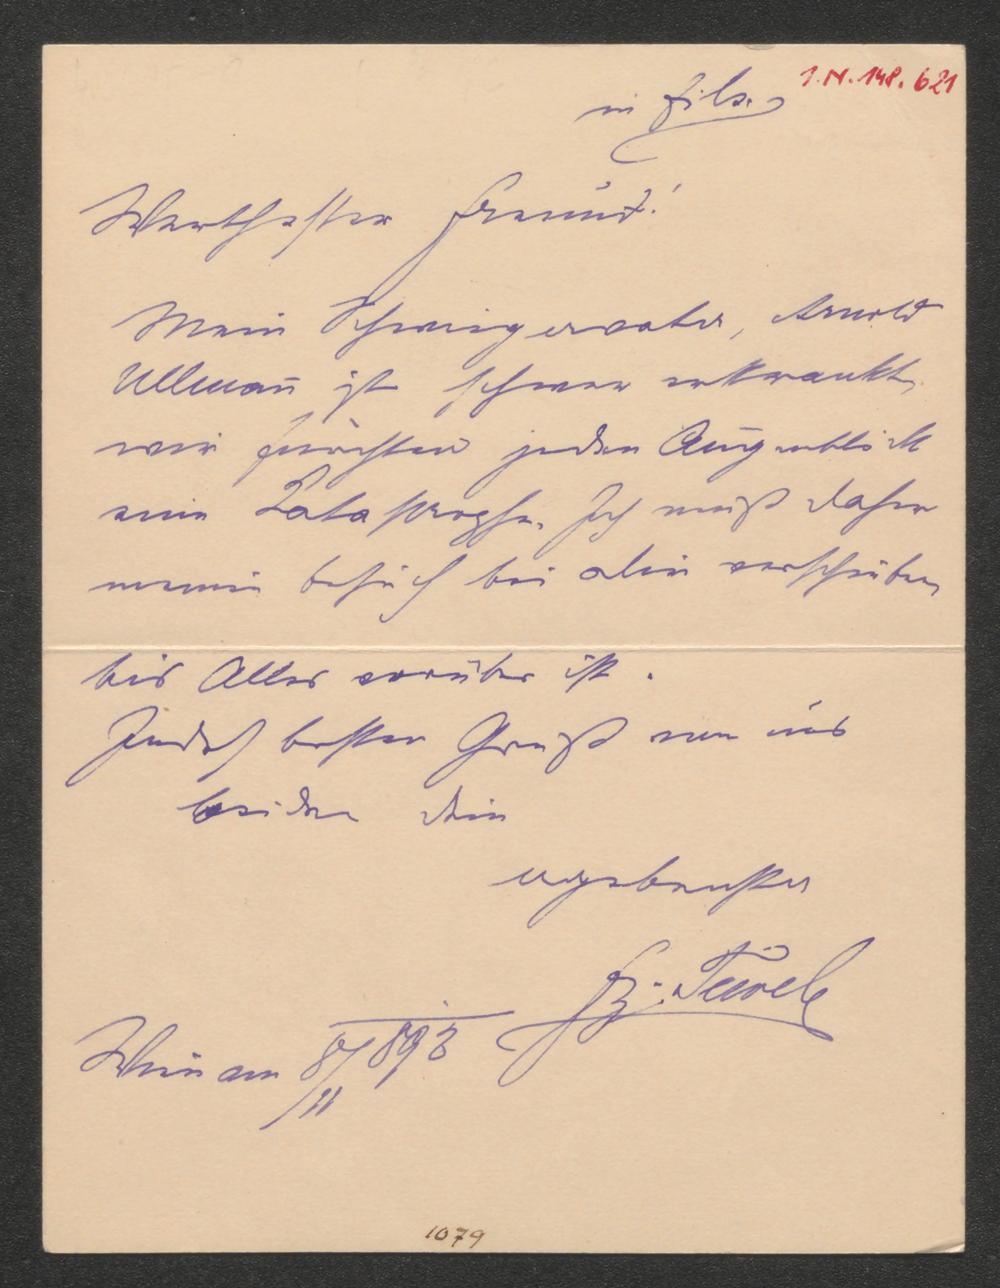 I.N. 148.621
in Eile.
Werthester Freund!
Mein Schwiegervater, Arnold
Ullmañ ist schwer erkrankt,
wir fürchten jeden Augenblick
eine Katastrophe. Ich muß daher
meinen Besuch bei Dir verschieben,
bis Alles vorüber ist.
Indeß besten Gruß von uns
beiden Dein
ergebenster
Fz. Tewele
Wien am 8/11 893
1079